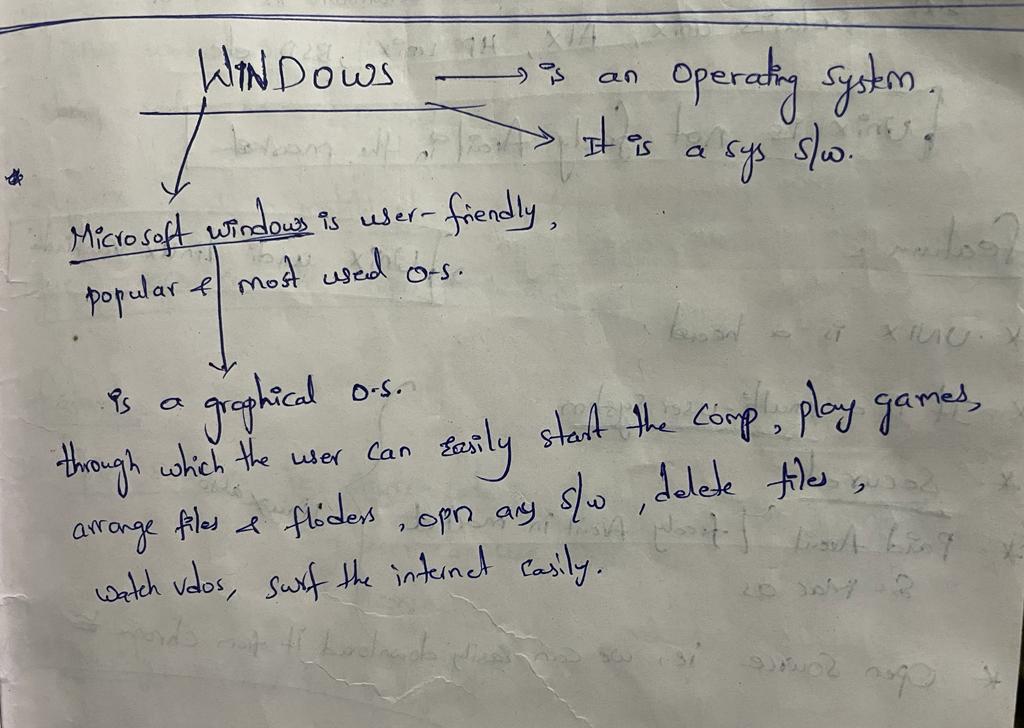 WINDOWS → is an Operating System.
→ It is a sys s/w.
Microsoft windows is user-friendly,
popular & most used o-s.
is a graphical o-s.
through which the user can easily start the comp, play games,
arrange files & floders, opn any s/w, delete files,
watch vdos, surf the internet easily.